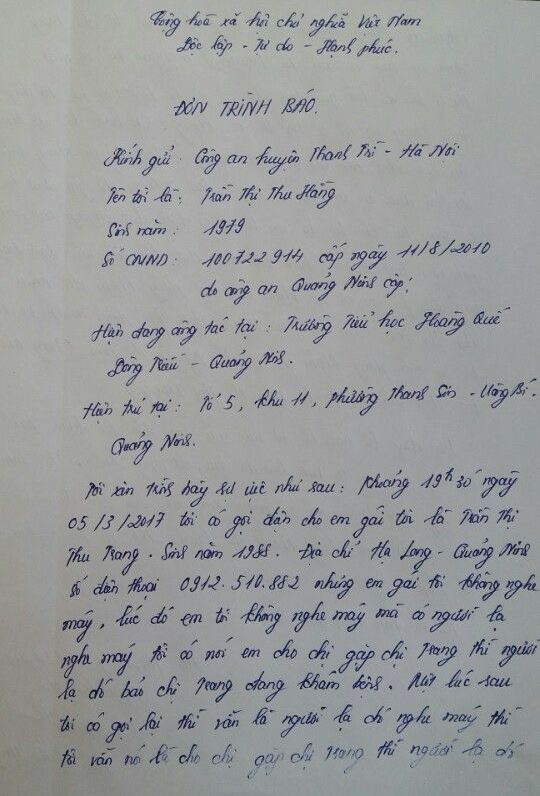 Cộng hoà xã hội chủ nghĩa Việt Nam
Độc lập - Tự do - Hạnh phúc.
ĐƠN TRÌNH BÁO.
Kính gửi: Công an huyện Thanh Trì - Hà Nội
Tên tôi là: Trần Thị Thu Hằng
Sinh năm: 1979
Số CMND: 100722914 cấp ngày 11/8/2010
do công an Quảng Ninh cấp.
Hiện đang công tác tại: Trường Tiểu học Hoàng Quế
Đông Triều - Quảng Ninh.
Hiện trú tại: Tổ 5, khu 11, phường Thanh Sơn - Uông Bí.
Quảng Ninh.
Tôi xin trình bày sự việc như sau: Khoảng 19h30 ngày
05/3/2017 tôi có gọi điện cho em gái tôi là Trần Thị
Thu Trang. Sinh năm 1988. Địa chỉ Hạ Long - Quảng Ninh
số điện thoại 0912.510.882 nhưng em gái tôi không nghe
máy, lúc đó em tôi không nghe máy mà có người lạ
nghe máy tôi có nói em cho chị gặp chị Trang thì người
lạ đó báo chị Trang đang khám bệnh. Một lúc sau
tôi có gọi lại thì vẫn là người lạ đó nghe máy thì
tôi vẫn nói là cho chị gặp chị Trang thì người lạ đó